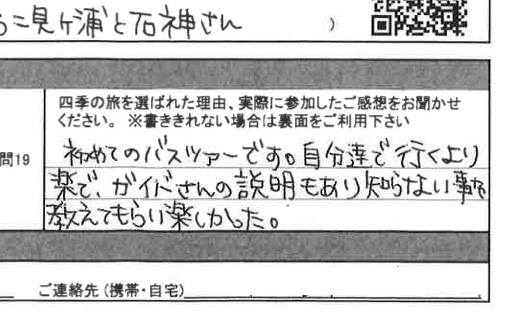 二見ヶ浦と石神さん )
四季の旅を選ばれた理由、実際に参加したご感想をお聞かせ
ください。 ※書ききれない場合は裏面をご利用下さい
問19
初めてのバスツアーです。自分達で行くより
楽で、ガイドさんの説明もあり知らない事を
教えてもらい楽しかった。
ご連絡先(携帯・自宅)